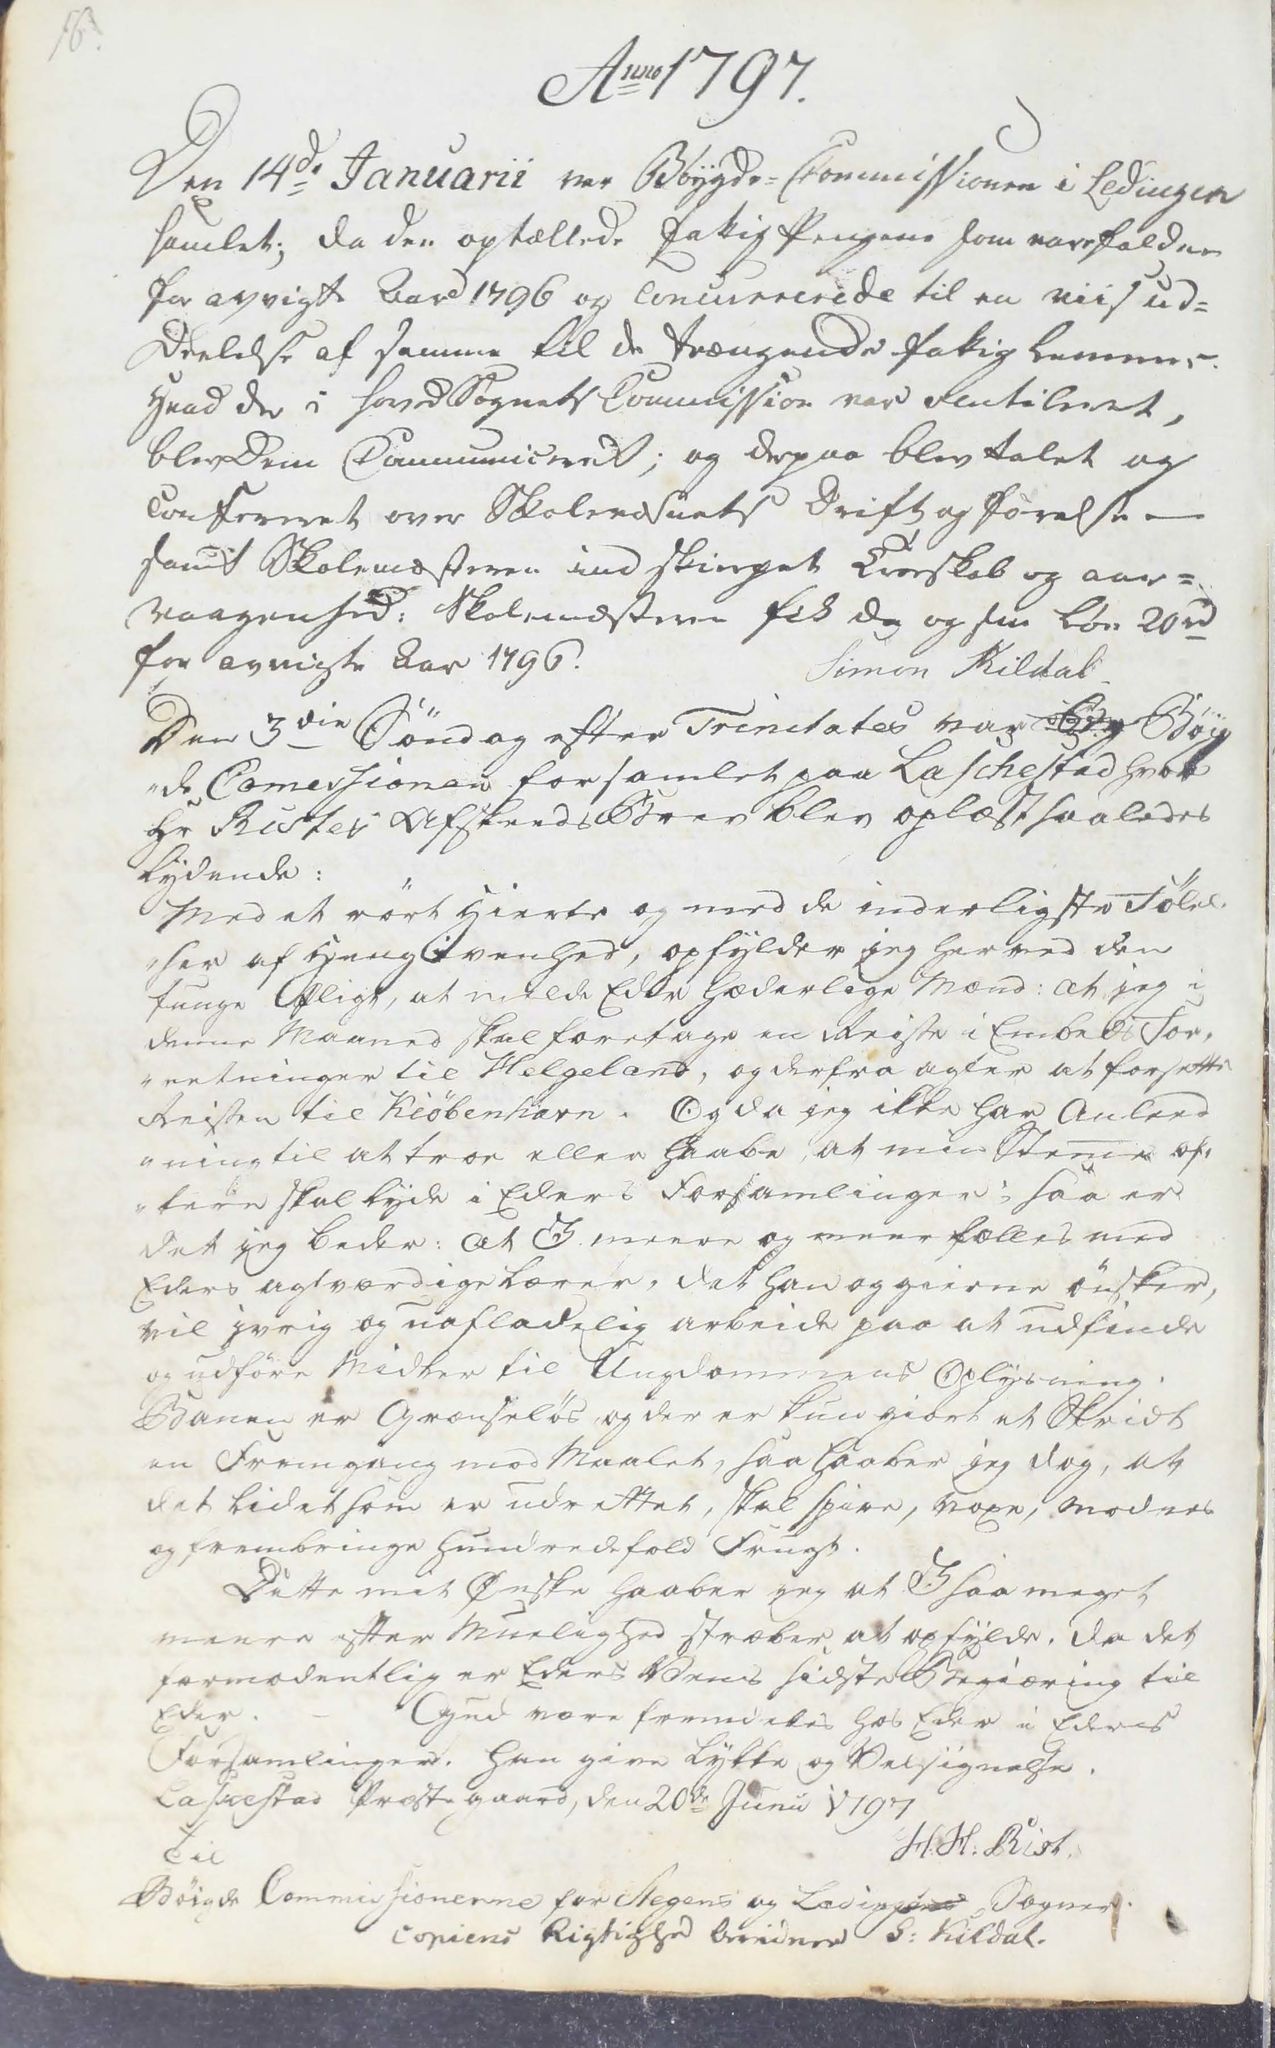 16.
Anno 1797.
Den 14de Januarii var Bøygde-Commissionen i Ledingen
samlet; da den optællede Fattig Pengene som vare falden
for avvigte Aar 1796 og concurrerede til en viis ud-
deelelse af samme til de trængende Fattig Lemmer.
Hvad der i HovedSognets Commission var ventileret,
blev dem Communiceret; og derpaa blev talet og
confereret over Skolevæsnets Drift og Førelse -
samt Skolemesteren ind skierpet Troeskab og aar-
vaagenhed: Skolemesteren fik da og sin Løn 20 rd
for avvigte Aar 1796.
Simon Kildal
Den 3die Söndag efter Trinitates var Böy
"de Comessionen forsamlet paa Laschestad hvor
Hr Ristes Afskeeds Brev blev oplæst saaledes
lydende:
Med et rört Hierte og med de inderligste Fölel-
"ser af Hengivenhed, opfylder jeg herved den
tunge Pligt, at melde Eder Hæderlige Mænd: at jeg i
denne Maaned skal foretage en Reise i Embeds For-
"retninger til Helgeland, og derfra agter at forsette
Reisen til Kiöbenhavn. Og da jeg ikke har Anleed
"ning til at troe eller haabe, at min Stemme of-
"tere skal lyde i Eders Forsamlinger; saa er
det jeg beder: at I meere og meer fælles med
Eders agtværdige Lærer, det han og gierne önsker,
vil ivrig og uafladelig arbeide paa at udfinde
og udföre Midler til Ungdommens Oplysning.
Banen er Grænselös, og der er kun giort et Skridt
en Fremgang mod Maalet, saa haaber jeg dog, at
det Lidet som er udrettet, skal spire, voxe, modnes
og frembringe Hundredefold Frugt.
Dette mit Ønske haaber jeg at I saa meget
meere efter Muelighed stræber at opfylde, da det
formodentlig er Eders Vens sidste Begiæring til
Eder. - Gud være fremdeles hos Eder i Eders
Forsamlinger. Han give Lykke og Velsignelse.
Laskestad Præstegaard, den 20de Junii 1797
H. H. Rist.
Til
Böigde Commissionerne for Stegens og Sogner.
Copiens Rigtighed bevidner S: Kildal.